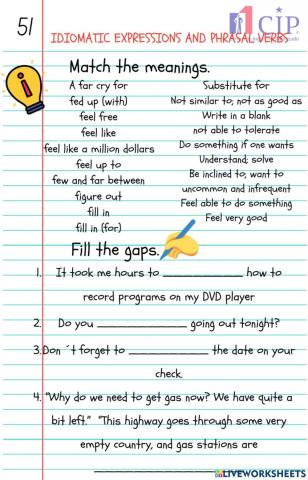 51
CIP
IDIOMATIC EXPRESSIONS AND PHRASAL VERBS
Match the meanings.
A far cry for
fed up (with)
feel free
feel like
feel like a million dollars
feel up to
few and far between
figure out
fill in
fill in (for)
Substitute for
Not similar to; not as good as
Write in a blank
not able to tolerate
Do something if one wants
Understand; solve
Be inclined to; want to
uncommon and infrequent
Feel able to do something
Feel very good
Fill the gaps.
1. It took me hours to ____________ how to
record programs on my DVD player
2. Do you ____________ going out tonight?
3.Don´t forget to ____________ the date on your
check.
4. "Why do we need to get gas now? We have quite a
bit left." "This highway goes through some very
empty country, and gas stations are
____________
LIVEWORKSHEETS